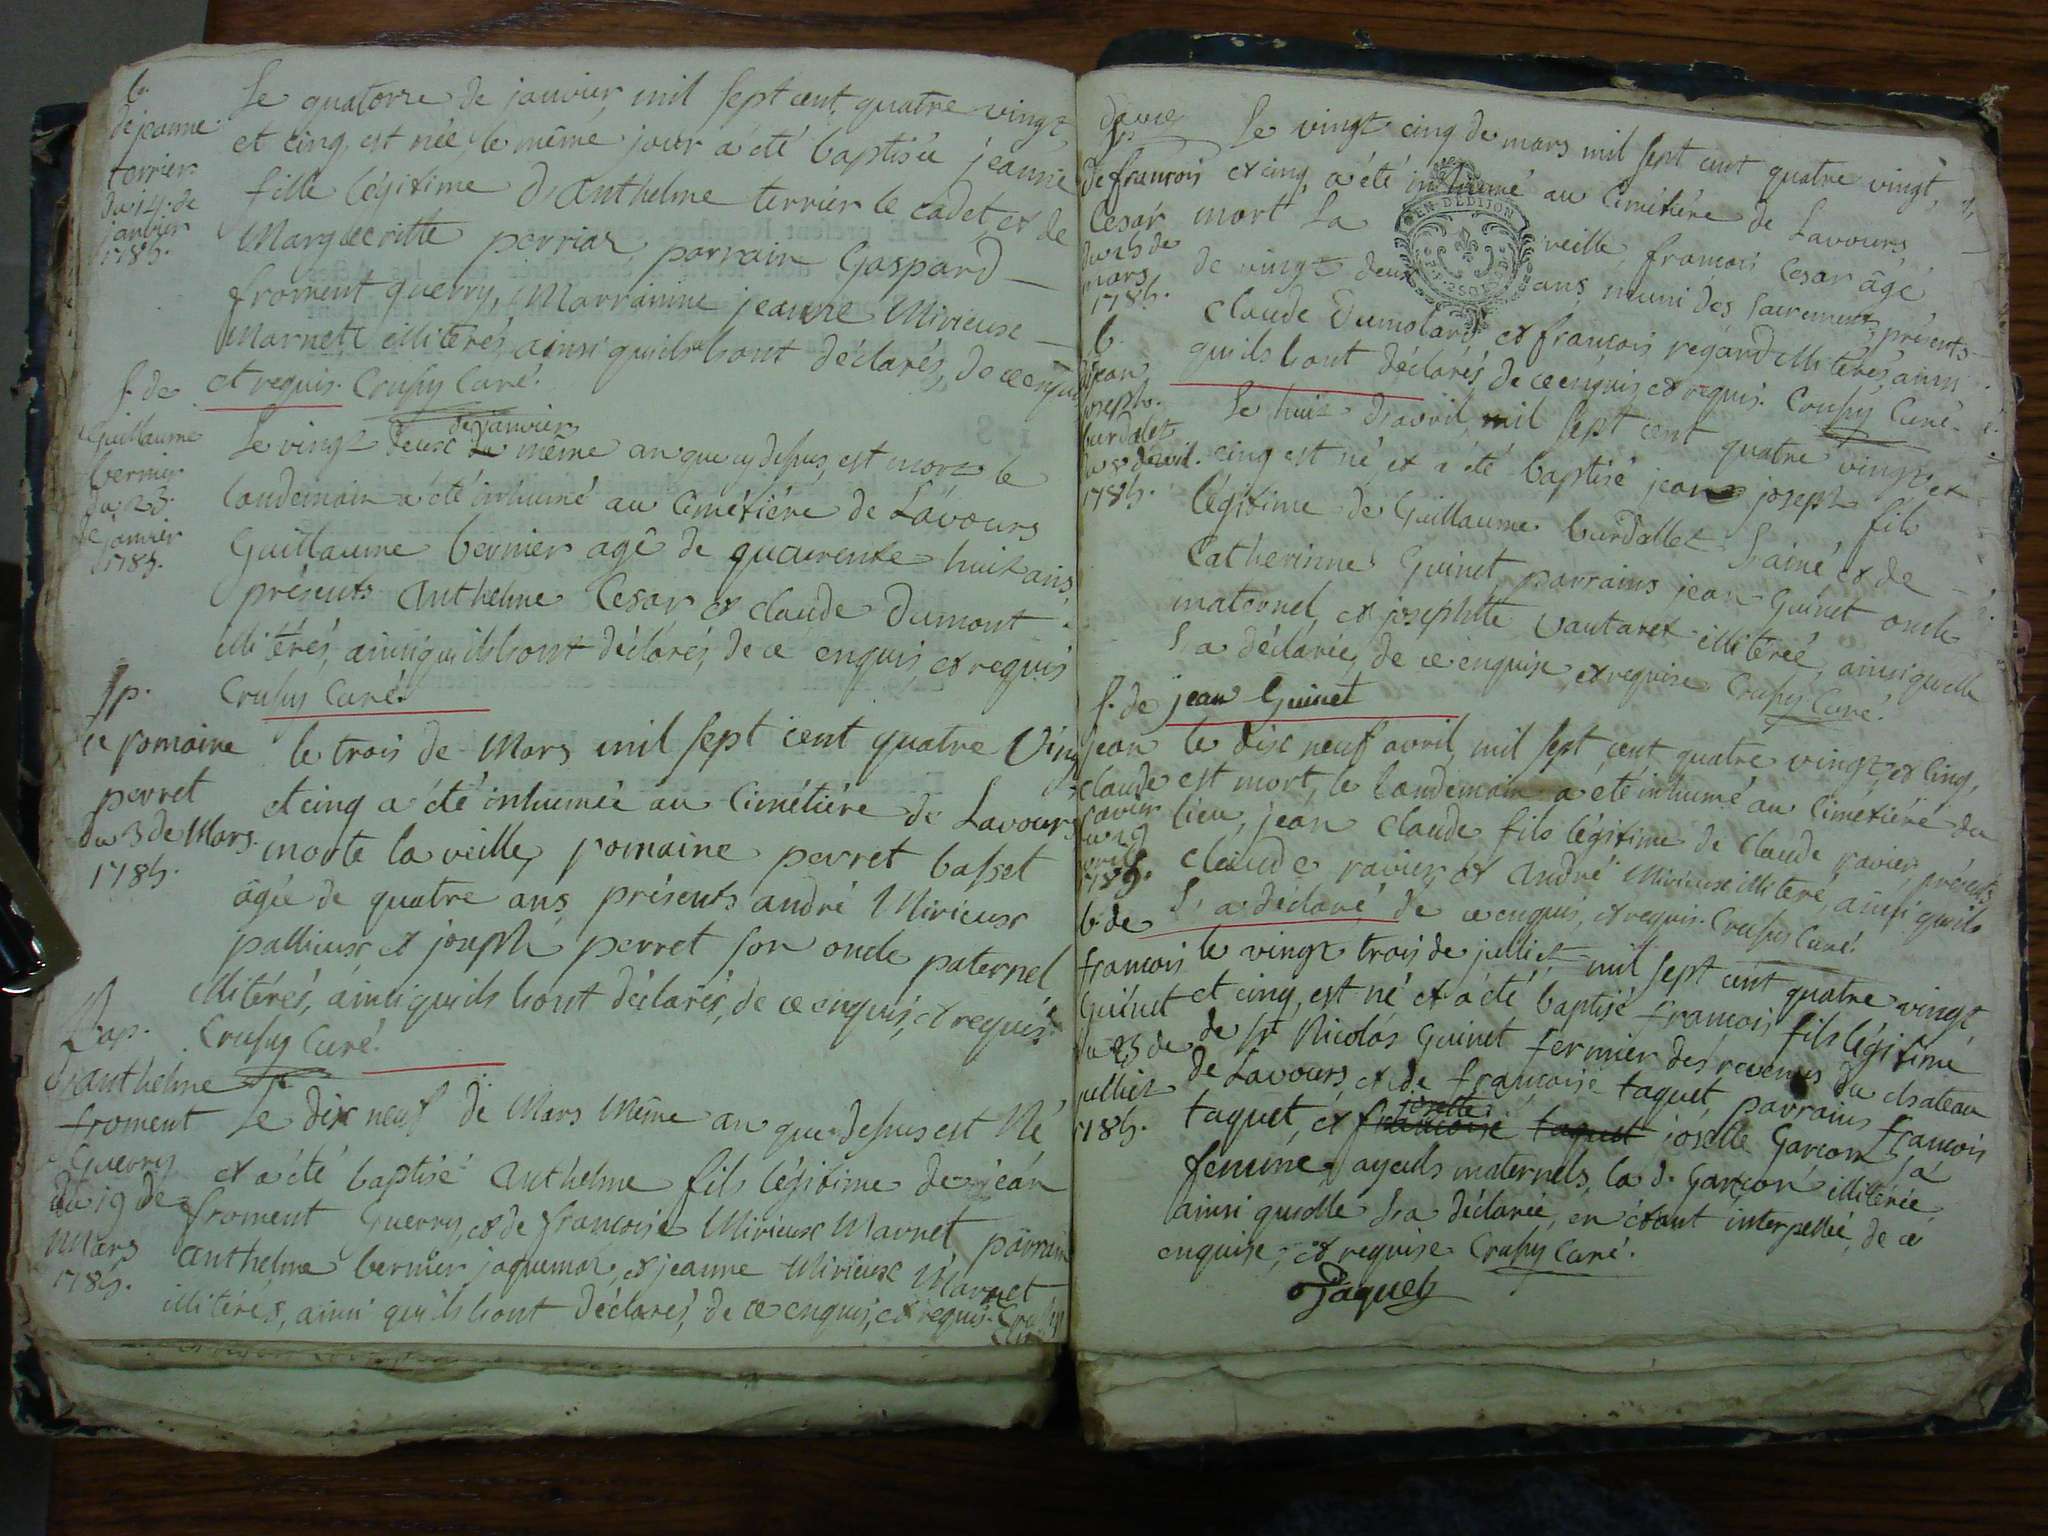 b.
de jeanne
terrier
du 14. de
janvier
1785.
Le quatorze de janvier mil sept cent quatre vingt
et cinq est née, le même jour a été baptisée jeanne
fille légitime d'anthelme terrier le cadet, et de
Margueritte perriar, parrain Gaspard
froment querry, Marrainne jeanne Mirieux
Marnett illiterés, ainsi quils l'ont déclarés, de ce enquis
et requis. Crussy Curé.
f. de
Guillaume
bernier
du 23.
de janvier
1785.
de janvier
Le vingt deux du même an que cy dessus, est mort, le
landemain a été inhumé au Cimétiére de Lavours
Guillaume bernier agé de quarente huit ans,
présents Anthelme Cesar et Claude Dumont
illitérés, ainsi quils l'ont déclarés, de ce enquis, et requis
Crussy Curé.
Sp.
de romaine
perret
du 3 de Mars.
1785.
le trois de Mars mil sept cent quatre Ving
et cinq a été inhumée au Cimétiére de Lavours
morte la veille, romaine perret basset
âgée de quatre ans, présents andré Mirieux
pallieux et joseph perret son oncle paternel
illitérés, ainsi quils l'ont déclarés, de ce enquis, et requis.
Crussy Curé.
Bap.
d'anthelme
froment
Guerry
du 19 de
Mars
1785.
Le dix neuf de Mars Même an que dessus est Né
et a été baptisé anthelme fils légitime de jean
froment Guerry, et de françoise Mirieux Marnet, parrain
anthelme bernier jaquemot, et jeanne Mirieux Marnet
illitérés, ainsi quils l'ont déclarés, de ce enquis, et requis. Crussy
Sp.
de francois
Cesar
du 25 de
mars
1785.
Le vingt cinq de mars mil sept cent quatre vingt,
et cinq, a été inhumé au Cimétiére de Lavours,
mort La veille, francois Cesar âgé
de vingt deux ans, muni des sacrements, présents
EN. DEDIJON
Claude Dumolard et francois regard illitérés, ainsi
quils l'ont déclarés, de ce enquis, et requis. Crussy Curé.
b.
de jean
joseph
burdalet
du 8 d'avril.
1785.
Le huit d'avril, mil sept cent quatre vingt, et
cinq est né, et a été baptisé jean joseph fils
légitime de Guillaume burdallet l'ainé, et de
Catherinne Guinet, parrains jean Guinet oncle
maternel, et josephtte Vautaret illiterée, ainsi quelle
l'a déclarée, de ce enquise et requise. Crussy Curé.
jean Guinet
f. de
jean
claude
ravier
du 19
avril
1785.
le dix neuf avril, mil sept cent quatre vingt, et cinq,
est mort, le landemain a été inhumé au Cimétiére du
lieu, jean Claude fils légitime de Claude ravier, présents
Claude ravier, et André Mirieux illiteré, ainsi quils
l'a déclaré de ce enquis, et requis. Crussy Curé.
b. de
francois
Guinet
du 23 de
julliet
1785.
le vingt trois de julliet mil sept cent quatre vingt
et cinq, est né et a été baptisé francois, fils légitime
de Sr. Nicolas Guinet fermier des revenus du chateau
de Lavours, et de françoise taquet, parrains francois
josette
taquet, et françoise taquet josette Garçon, sa
femme, ayeuls maternels, la d. Garçon illitérée
ainsi quelle l'a déclarée, en étant interpellée, de ce
enquise, et requise. Crussy Curé.
Taquet